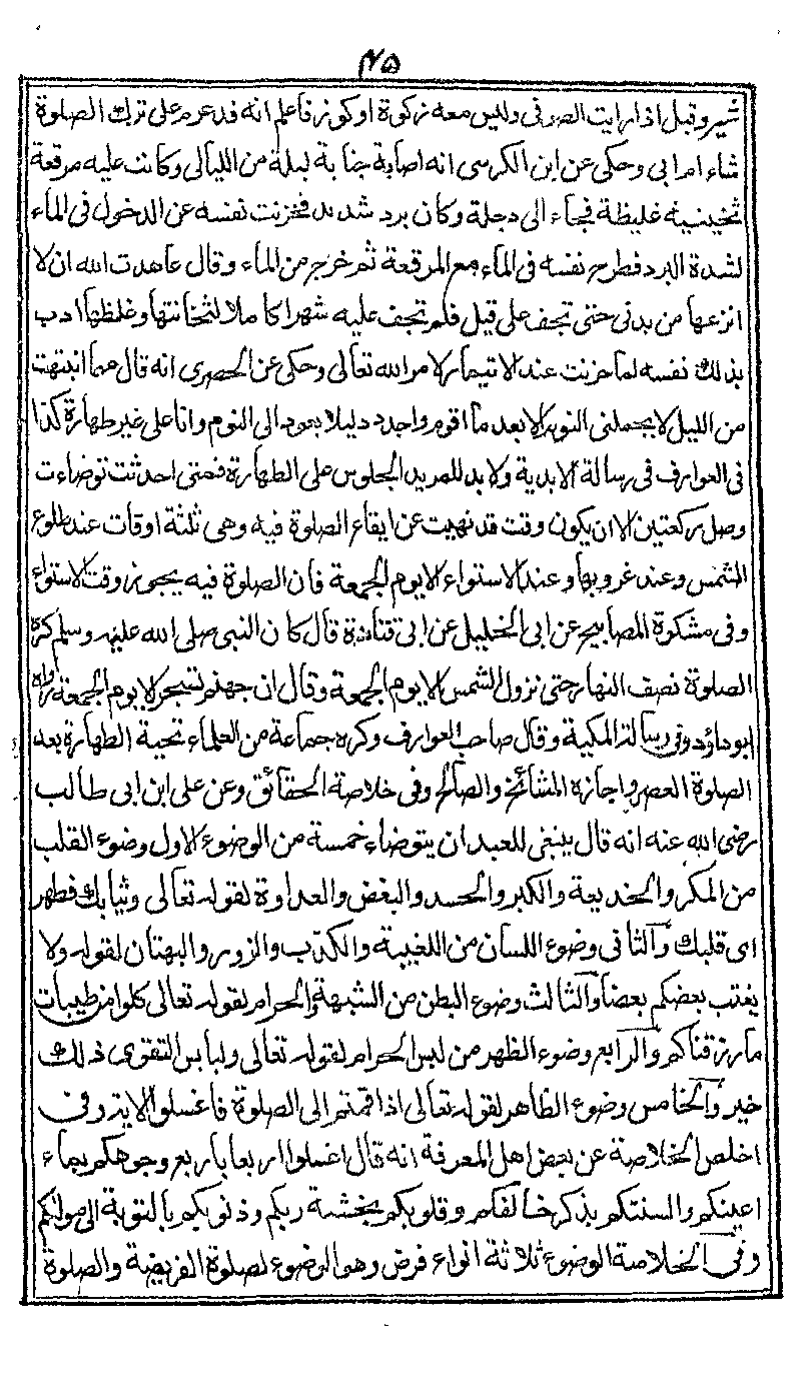 ۴۵
شير وقيل اذا رايت الصوفى وليس معه زكوة او كوز فاعلم انه قد عزم على ترك الصلوة
شاء ام ابى وحكى عن ابن الكرسى انه اصابة جنابة ليلة من الليالى وكانت عليه مرقعة
ثخينية غليظة فجاء الى دجلة وكان برد شديد فخزنت نفسه عن الدخول فى الماء
لشدة البرد فطرح نفسه فى الماء مع المرقعة ثم خرج من الماء وقال عاهدت الله ان لا
انزعها من بدنى حتى تجف على قيل فلم تجف عليه شهرا كاملا لثخانتها وغلظها ادب
بذلك نفسه لما حزنت عند الاتيمار لامر الله تعالى وحكى عن الحصرى انه قال مهما انبتهت
من الليل لا يحملنى النوم الا بعد ما اقوم واجدد دليلا يعود الى النوم وانا على غير طهارة كذا
فى العوارف فى رسالة الابدية ولابد للمريد الجلوس على الطهارة فمتى احدثت توضاءت
وصل ركعتين الا ان يكون وقت قد نهيت عن ايقاع الصلوة فيه وهى ثلثة اوقات عند طلوع
الشمس وعند غروبها وعند الاستواء الا يوم الجمعة فان الصلوة فيه يجوز وقت الاستواء
وفى مشكوة المصابيح عن ابى الخليل عن ابى قتادة قال كان النبى صلى الله عليه وسلم كره
الصلوة نصف النهار حتى نزول الشمس الا يوم الجمعة وقال ان جهنم تسجر الا يوم الجمعة رواه
ابوداؤد وفى رسالة المكية وقال صاحب العوارف وكره جماعة من العلماء تحية الطهارة بعد
الصلوة العصر واجازه المشائخ والصالح وفى خلاصة الحقائق وعن على ابن ابى طالب
رضى الله عنه انه قال ينبغى للعبد ان يتوضاء خمسة من الوضوء الاول وضوء القلب
من المكر والخديعة والكبر والحسد والبغض والعداوة لقوله تعالى وثيابك فطهر
اى قلبك والثانى وضوء اللسان من اللغيبة والكذب والزور والبهتان لقوله ولا
يغتب بعضكم بعضا والثالث وضوء البطن من الشبهة والحرام لقوله تعالى كلوا من طيبات
ما رزقناكم والرابع وضوء الظهر من لبس الحرام لقوله تعالى ولباس التقوى ذلك
خير والخامس وضوء الظاهر لقوله تعالى اذا قمتم الى الصلوة فاغسلوا الاية وفى
اخلص الخلاصة عن بعض اهل المعرفة انه قال اغسلوا اربعا باربع وجوهكم بماء
اعينكم والسنتكم بذكر خالقكم وقلوبكم بخشية ربكم وذنوبكم بالتوبة الى مولكم
وفى الخلاصة الوضوء ثلاثة انواع فرض وهو الوضوء لصلوة الفريضة والصلوة